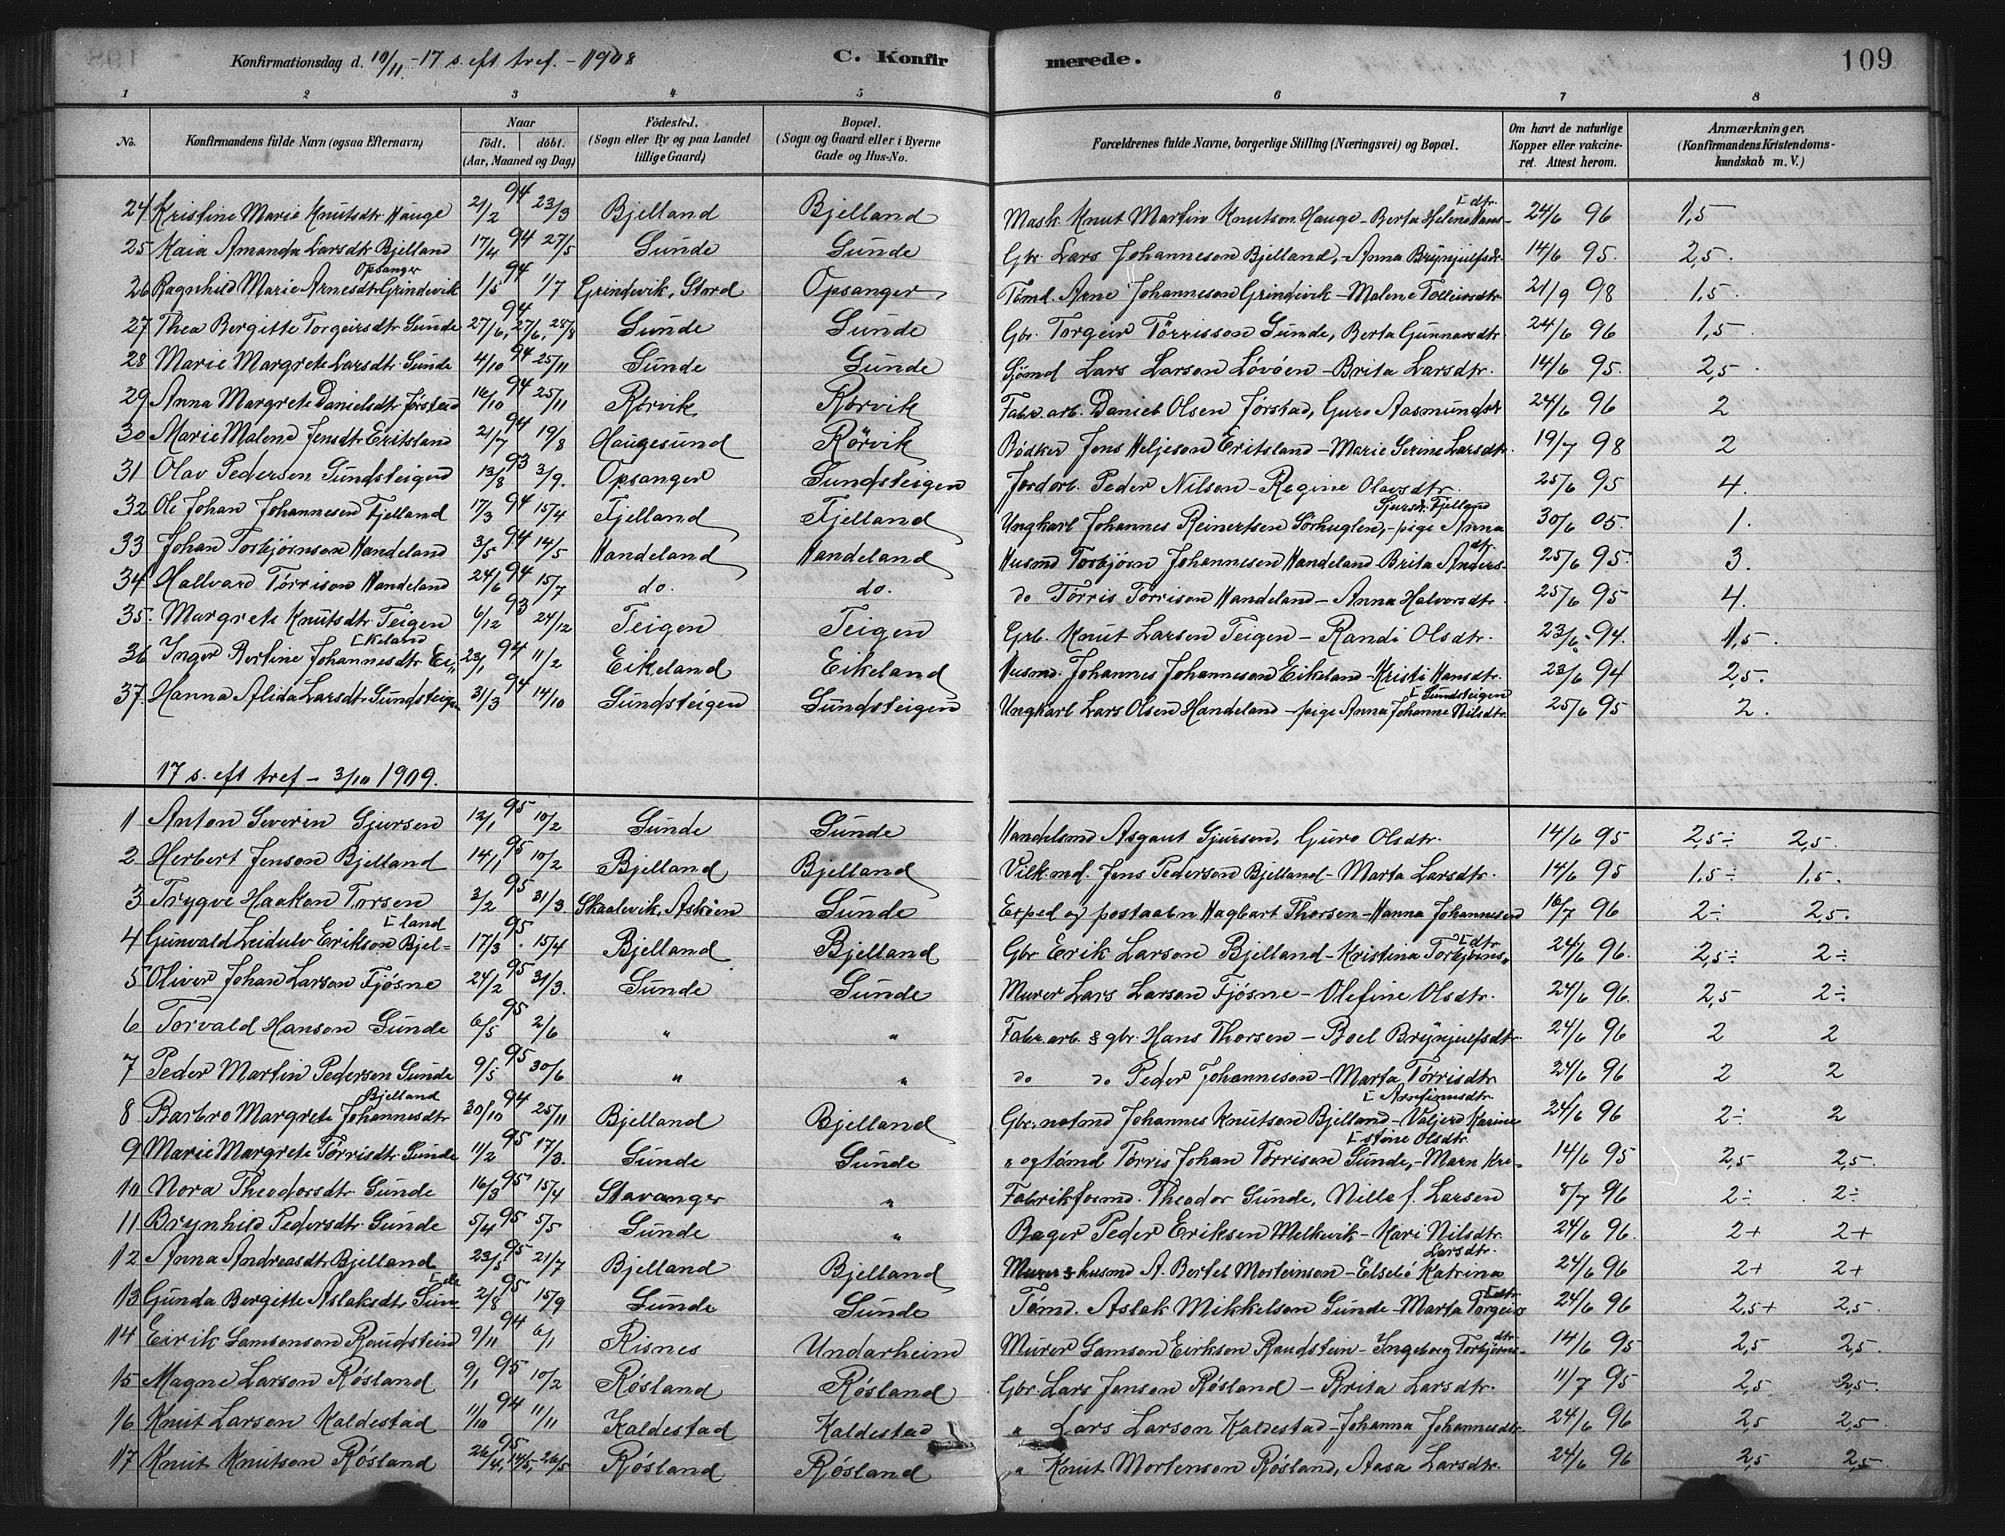 Konfirmationsdag d. 10/11 - 17 s. eft tref. - 1908 C. Konfirmerede. 109
1 2 3 4 5 6 7 8
No. Konfirmandens fulde Navn (ogsaa Efternavn) Naar født. døbt. (Aar, Maaned og Dag) Fødested. (Sogn eller By og paa Landet tillige Gaard) Bopæl. (Sogn og Gaard eller i Byerne Gade og Hus-No. Forældrenes fulde Navne, borgerlige Stilling (Næringsvei) og Bopæl. Om havt de naturlige Kopper eller vakcineret. Attest herom. Anmærkninger, (Konfirmandens Kristendomskundskab m. V.)
24 Kristine Marie Knutsdtr. Hauge 2/2 94 23/3 Bjelland Bjelland Mask. Knut Martin Knutson Hauge - Berta Helene Hansdtr. 24/6 96 1,5
25 Kaia Amanda Larsdtr Bjelland 17/4 94 27/5 Sunde Sunde Gbr. Lars Johanneson Bjelland, - Anna Brynjulfsdtr. 14/6 95. 2,5.
26 Ragnhild Marie Arnesdtr Grindevik Opsanger 1/5 94 1/7 Grindevik, Stord Opsanger Tømd. Arne Johanneson Grindevik - Malene Tolleivsdtr 21/9 98 1,5.
27 Thea Bergitte Torgeirsdtr Sunde 27/6, 94 27/6, 25/8 Sunde Sunde Gbr. Torgeir Tørrisson Sunde, Berta Gunnarsdtr. 24/6 96 1,5
28 Marie Margrete Larsdtr Sunde 4/10 94 25/11 Sunde Sunde Sjømd Lars Larson Løvøen - Brita Larsdtr. 14/6 95. 2,5
29 Anna Margrete Danielsdtr Jørstad 16/10 94 25/11 Rørvik Rørvik Fabr. arb. Daniel Olsen Jørstad, Guro Aasmundsdtr 24/6 96 2
30 Marie Malene Jensdtr Eritsland 21/7 94 19/8 Haugesund Rørvik Bødker Jens Heljeson Eritsland - Marie Serine Larsdtr. 19/7 98 2
31 Olav Pedersen Sundsteigen 13/8 93 3/9. Opsanger Sundsteigen Jordarb. Peder Nilson - Regine Olavsdtr. 25/6 95 4.
32 Ole Johan Johannesen Fjelland 17/3 94 15/4 Fjelland Fjelland Ungkarl Johannes Reinertsen Sørhuglen, - pige Anna Sjursdtr. Fjelland 30/6 05. 1.
33 Johan Torbjørnson Handeland 3/5 94 14/5 Handeland Handeland Husmd Torbjørn Johannesen Handeland Brita Andersdtr 25/6 95. 3.
34 Hallvard Tørrison Handeland 24/6 94 15/7 do. do. do Tørris Tørrison Handeland - Anna Halvorsdtr. 25/6 95 4.
35. Margrete Knutsdtr Teigen 6/12 93 24/12 Teigen Teigen Grb. Knut Larsen Teigen - Randi Olsdtr. 23/6 - 94. 1,5.
36 Inger Bertine Johannesdtr Eikeland 23/1 94 11/2 Eikeland Eikeland Husmd. Johannes Johanneson Eikeland - Kristi Hansdtr. 23/6 94 2,5.
37. Hanna Alida Larsdtr. Sundsteigen 31/3 94 14/10 Sundsteigen Sundsteigen Ungkarl Lars Olsen Handeland - pige Anna Johanne Nilsdtr. Sundsteigen 25/6 95 2.
17 s. eft tref - 3/10 1909.
1 Anton Severin Sjursen 12/1 95 10/2 Sunde Sunde Handelsmd Asgaut Sjursen, Guro Olsdtr. 14/6 95 2,5÷ 2,5.
2 Herbert Jenson Bjelland 14/1 95 10/2 Bjelland Bjelland Vilk. md. Jens Pederson Bjelland - Marta Larsdtr. 14/6 95 1,5÷ 1,5.
3 Trygve Haakon Torsen 3/2 95 31/3 Skaalevik, Askøen Sunde Exped og postaabn Hagbart Thorsen - Hanna Johannesen 16/7 96 2÷ 2,5.
4 Gunvald Leidulv Erikson Bjelland 17/3 95 15/4 Bjelland Bjelland Gbr Erik Larson Bjelland - Kristina Torbjørnsdtr. 24/6 96. 2,5÷ 2÷
5 Oliver Johan Larson Fjøsne 24/2 95 31/3. Sunde Sunde Murer Lars Larson Fjøsne - Olefine Olsdtr. 24/6 96. 2,5 2÷
6 Torvald Hanson Sunde 6/5 95 2/6 " " Fabr. arb. & gbr. Hans Thorsen - Boel Brynjulfsdtr 24/6 96 2 2
7 Peder Martin Pedersen Sunde 9/5 95 30/6 " " do do Peder Johanneson - Marta Tørrisdtr 24/6 96 2 2
8 Barbro Margrete Johannesdtr Bjelland 30/10 94 25/11 Bjelland Bjelland Gbr. notmd Johannes Knutson Bjelland - Valjerd Karine Arnfinnsdtr 24/6 96 2÷ 2
9 Marie Margrete Tørrisdtr Sunde 11/2 95 17/3. Sunde Sunde " og tømd Tørris Johan Tørrison Sunde, - Marn Kristine Olsdtr. 14/6 95 2,5 2,5.
10 Nora Theodorsdtr Sunde 16/3 95 15/4 Stavanger " Fabrikformd. Theodor Sunde, Nille f. Larsen 5/7 96 2÷ 2÷
11 Brynhild Pedersdtr Sunde 5/4 95 5/5 Sunde " Bager Peder Eriksen Melkevik - Kari Nilsdtr. 24/6 96. 2+ 2+
12 Anna Andreasdtr Bjelland 23/5 95 21/7 Bjelland Bjelland Murer & husmd A. Bertel Morteinson - Elsebø Katrina Larsdtr. 24/6 96 2+ 2+
13 Gunda Bergitte Aslaksdtr Sunde 2/8 95 15/9 Sunde Sunde Tømd. Aslak Mikkelson Sunde - Marta Torgeirsdtr 24/6 96 2,5+ 2,5.
14 Eirik Samsonson Raudstein 9/11 94 6/1 Risnes Undarheim Murer Samson Eirkson Raudstein - Ingeborg Torbjørnsdtr. 14/6 95 2,5 2,5.
15 Magne Larson Røsland 9/1 95 10/2 Røsland Røsland Gbr. Lars Jenson Røsland - Brita Larsdtr. 11/7 95 2,5 2,5.
16 Knut Larson Kaldestad 11/10 94 11/11 Kaldestad Kaldestad " Lars Larson Kaldestad - Johanna Johannesdtr. 24/6 96 2,5 2,5.
17 Knut Knutson Røsland 26/4, 95 14/5, 26/5 Røsland Røsland " Knut Mortenson Røsland, Aasa Larsdtr. 24/6 96 2,5 2,5.